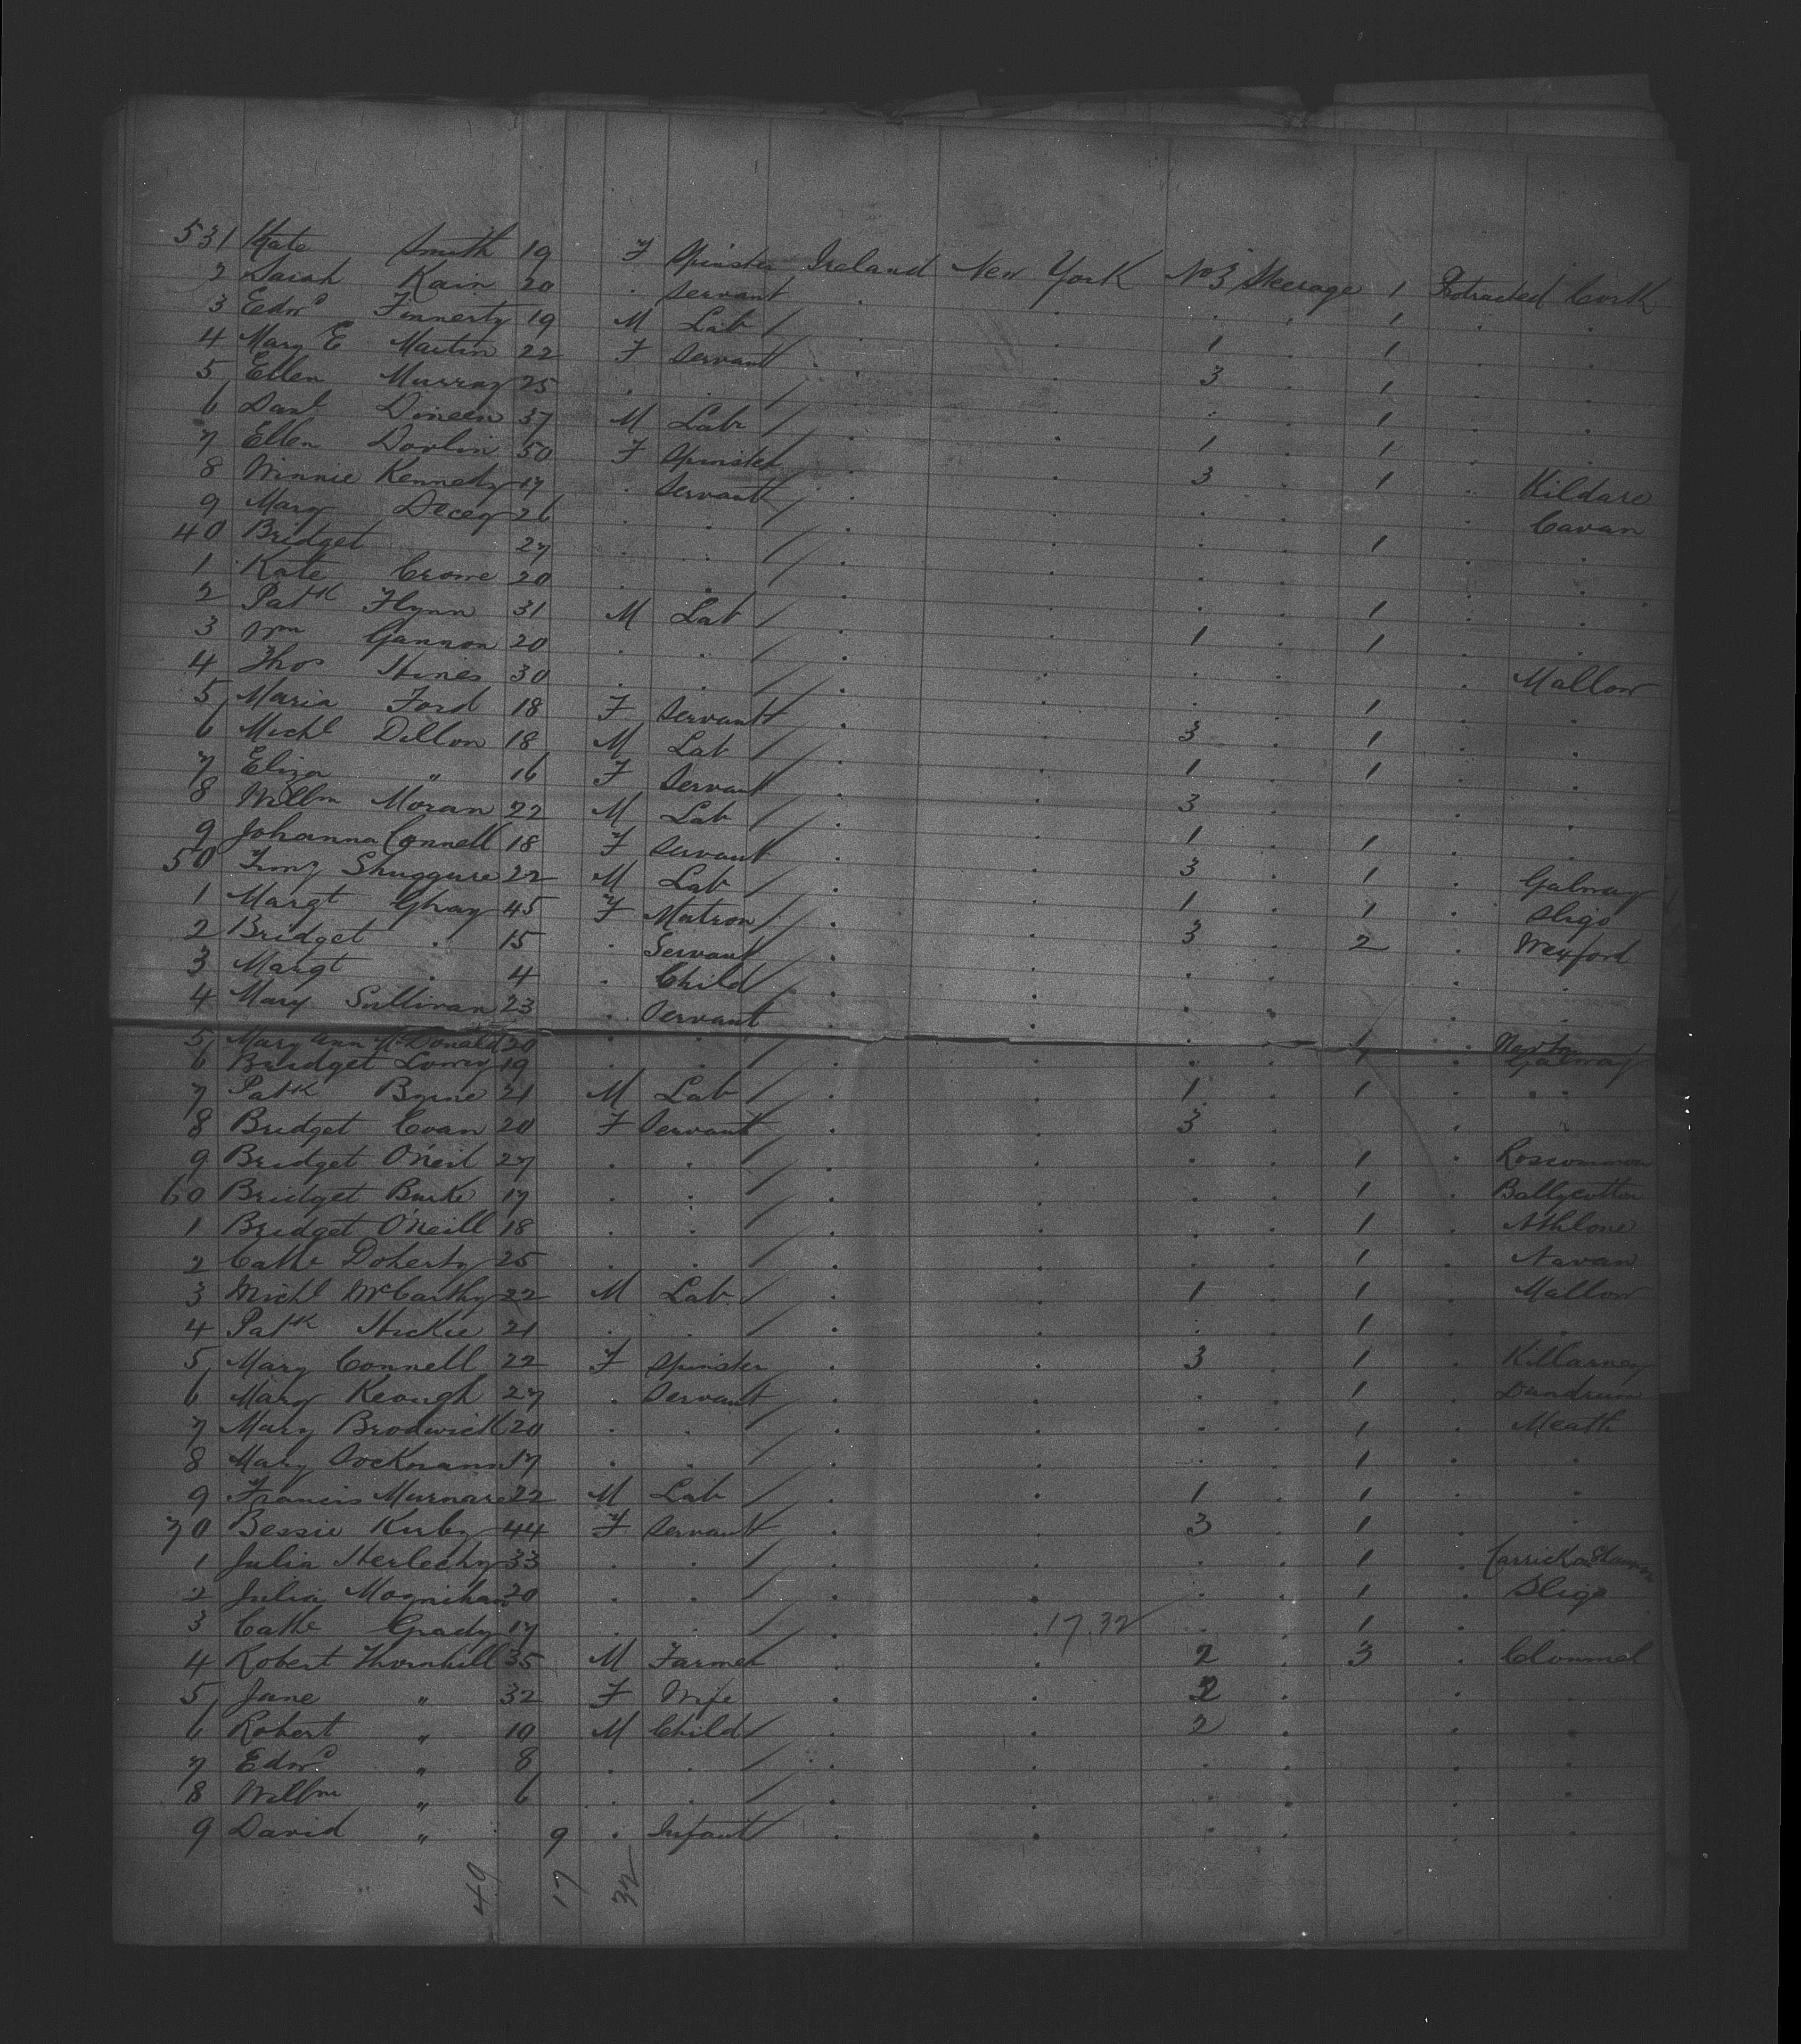 531 Kate Smith 19 F Spinster Ireland New York No 3 Steerage 1 Protracted Cork
2 Sarah Kain 20 . Servant . . . . 1 . .
3 Edwd Finnerty 19 M Lab / . . 1 . 1 . .
4 Mary E Martin 22 F Servant . . 3 . 1 . .
5 Ellen Murray 25 . . / . . . . 1 . .
6 Danl Dineen 37 M Labr / . . 1 . 1 . .
7 Ellen Dovlin 50 F Spinster . . 3 . 1 . Kildare
8 Winnie Kennedy 17 . Servant / . . . . . Cavan
9 Mary Decey 26 . . / . . . . 1 . .
40 Bridget 27 . . / . . . . . .
1 Kate Crowe 20 . . / . . . . 1 . .
2 Patk Flynn 31 M Lab / . . 1 . 1 . .
3 Wm Gannon 20 . . / . . . . . Mallow
4 Thos Hines 30 . . / . . . . 1 . .
5 Maria Ford 18 F Servant / . . 3 . 1 . .
6 Michl Dillon 18 M Lab / . . 1 . 1 . .
7 Eliza " 16 F Servant . . 3 . . .
8 Willm Moran 22 M Lab / . . 1 . 1 . .
9 Johanna Connell 18 F Servant . . 3 . 1 . Galway
50 Timy Shuggure 22 M Lab / . . 1 . 1 . Sligo
1 Margt Ghay 45 F Matron / . . 3 . 2 . Wexford
2 Bridget . 15 . Servant / . . . . . .
3 Margt . 4 . Child / . . . . . .
4 Mary Sullivan 23 . Servant . . . . 1 .
5 Mary Ann McDonald 20 . . / . . . .
6 Bridget Lowry 19 . . / . . . . Galway
7 Patk Byrne 21 M Lab / . . 1 . 1 . .
8 Bridget Coan 20 F Servant . . 3 . . .
9 Bridget O'Neil 27 . . / . . . . 1 . Roscommon
60 Bridget Burke 17 . . / . . . . 1 . Ballycotton
1 Bridget O'Neill 18 . . / . . . . 1 . Athlone
2 Cathe Doherty 25 . . / . . . . 1 . Navan
3 Michl McCarthy 22 M Lab / . . 1 . 1 . Mallow
4 Patk Hickie 21 . . / . . . . 1 . .
5 Mary Connell 22 F Spinster . . 3 . 1 . Killarney
6 Mary Keough 27 . Servant . . . . 1 . Dundrum
7 Mary Brodwick 20 . . / . . . . 1 . Meath
8 Mary 17 . . / . . . . 1 . .
9 Francis Murnare 22 M Lab / . . 1 . 1 . .
70 Bessie Kirby 44 F Servant . . 3 . 1 . .
1 Julia Herlechy 33 . . / . . . . 1 . Carrick on Shannon
2 Julia Moynihan 20 . . / . . . . 1 . Sligo
3 Cathe Grady 17 . . / . . 17.32 . . 1 . .
4 Robert Thornhill 35 M Farmer . . 2 . 3 . Clonmel
5 Jane " 32 F Wife . . 2 . . .
6 Robert " 10 M Child / . . 2 . . .
7 Edwd " 8 . . / . . . . . .
8 Willm " 6 . . / . . . . . .
9 David " 9 . Infant / . . . . . .
49 17 32